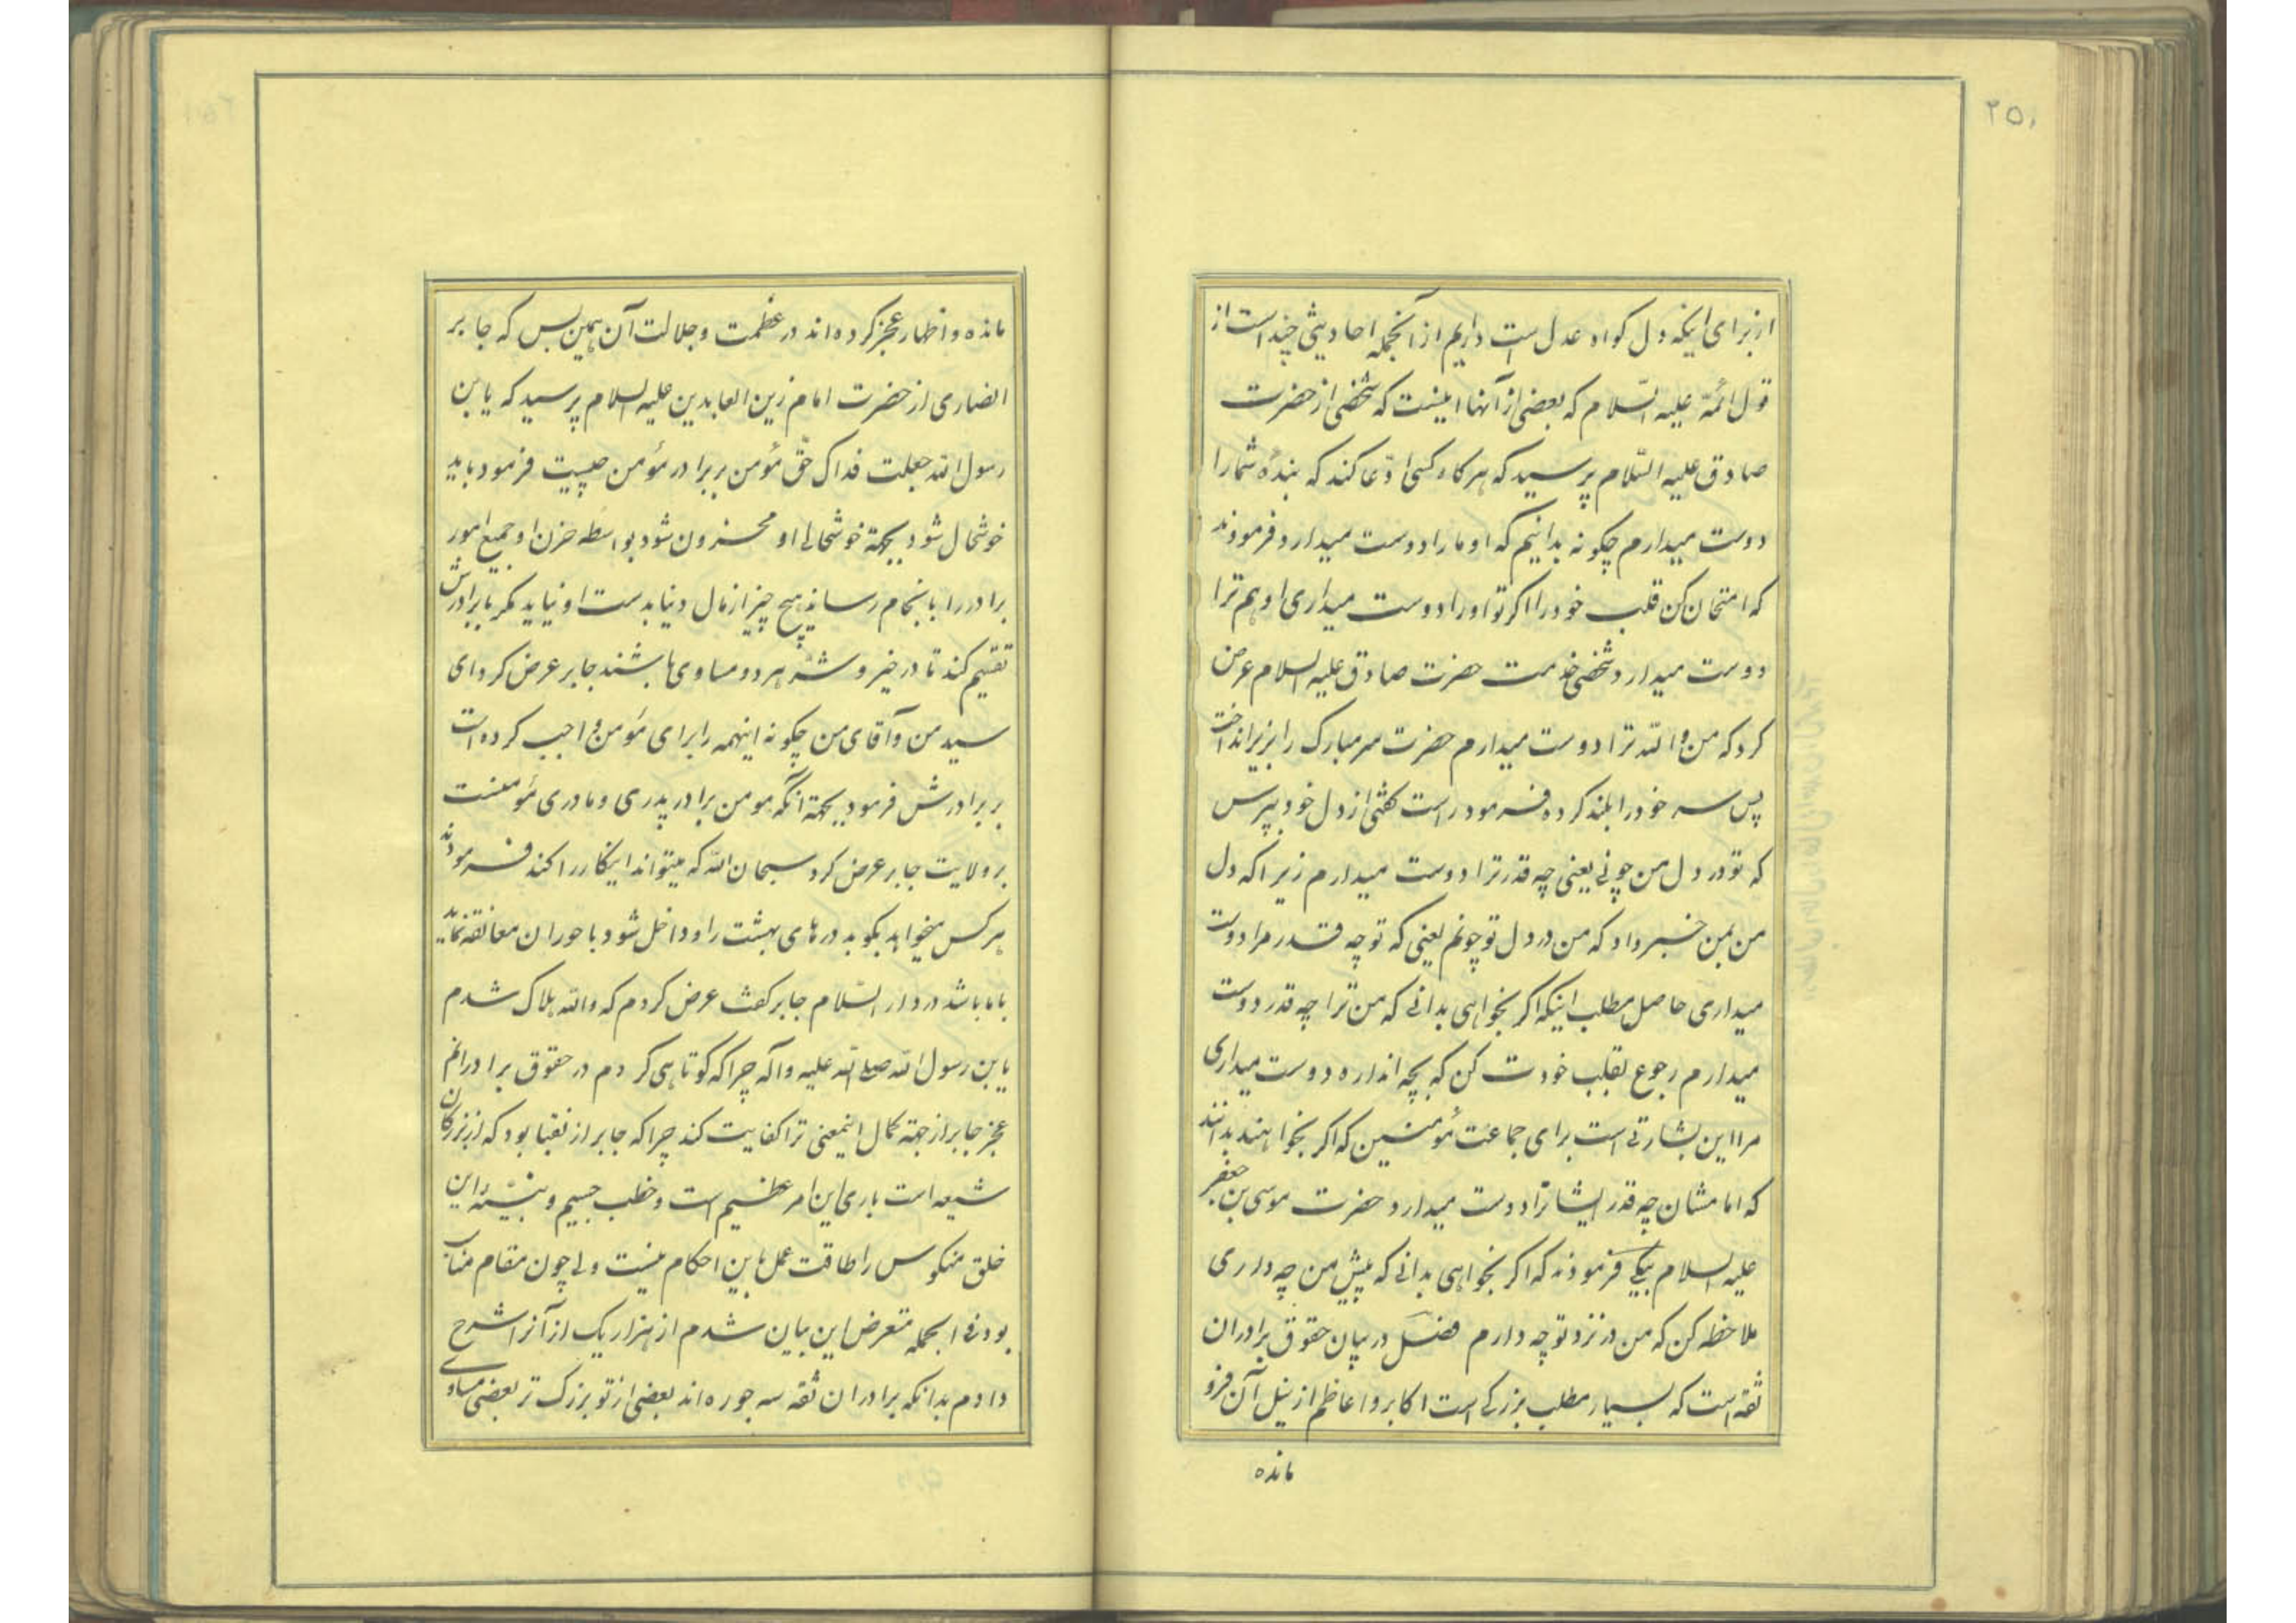 ۲۵۰
از برای اینکه دل کواه عدل است داریم از آنجمله احادیثی چند است از
قول ائمّه علیه السّلام که بعضی از آنها اینست که شخصی از حضرت
صادق علیه السّلام پرسید که هرکاه کسی ادّعا کند که بندهٔ شما را
دوست میدارم چکونه بدانیم که او ما را دوست میدارد فرمودند
که امتحان کن قلب خود را اکر تو او را دوست میداری او هم ترا
دوست میدارد شخصی خدمت حضرت صادق علیه السلام عرض
کرد که من والله ترا دوست میدارم حضرت سر مبارک را بزیر انداخت
پس سر خود را بلند کرده فرمود راست کفتی از دل خود بپرس
که تو در دل من چونی یعنی چه قدر ترا دوست میدارم زیرا که دل
من بمن خبر داد که من در دل تو چونم یعنی که تو چه قدر مرا دوست
میداری حاصل مطلب اینکه اکر بخواهی بدانی که من ترا چه قدر دوست
میدارم رجوع بقلب خودت کن که بچه اندازه دوست میداری
مرا این بشارتی است برای جماعت مؤمنین که اکر بخواهند بدانند
که امامشان چه قدر ایشانرا دوست میدارد حضرت موسی بن جعفر
علیه السلام بیکی فرمودند که اکر بخواهی بدانی که پیش من چه داری
ملاحظه کن که من در نزد تو چه دارم فصل در بیان حقوق برادران
ثقه است که بسیار مطلب بزرکی است اکابر و اعاظم از نیل آن فرو
مانده
مانده و اظهار عجز کرده‌اند در عظمت و جلالت آن همین بس که جابر
انصاری از حضرت امام زین العابدین علیه السلام پرسید که یابن
رسول الله جعلت فداک حقّ مؤمن بر برادر مؤمن چیست فرمود باید
خوشحال شود بجهة خوشحالی او محزون شود بواسطه حزن او جمیع امور
برادر را بانجام رساند هیچ چیز از مال دنیا بدست او نیاید مکر با برادرش
تقسیم کند تا در خیر و شر هر دو مساوی باشند جابر عرض کرد ای
سید من و آقای من چکونه اینهمه را برای مؤمن واجب کرده است
بر برادرش فرمود بجهة آنکه مومن برادر پدری و مادری مؤمنست
بر ولایت جابر عرض کرد سبحان الله که میتواند اینکار را کند فرمودند
هر کس میخواهد بکوبد درهای بهشت را و داخل شود با حوران معانقه نماید
با ما باشد در دار السّلام جابر کفت عرض کردم که والله هلاک شدم
یابن رسول الله صلی الله علیه و آله چرا که کوتاهی کردم در حقوق برادرانم
عجز جابر از جهة کمال اینمعنی ترا کفایت کند چرا که جابر از نقبا بود که از بزرکان
شیعه است باری این امر عظیم است و خطب جسیم و بنیهٔ این
خلق منکوس را طاقت عمل باین احکام نیست ولی چون مقام مناسب
بود فی الجمله متعرض این بیان شدم از هزار یک از آنرا شرح
دادم بدانکه برادران ثقه سه جوره‌اند بعضی از تو بزرک تر بعضی مساوی